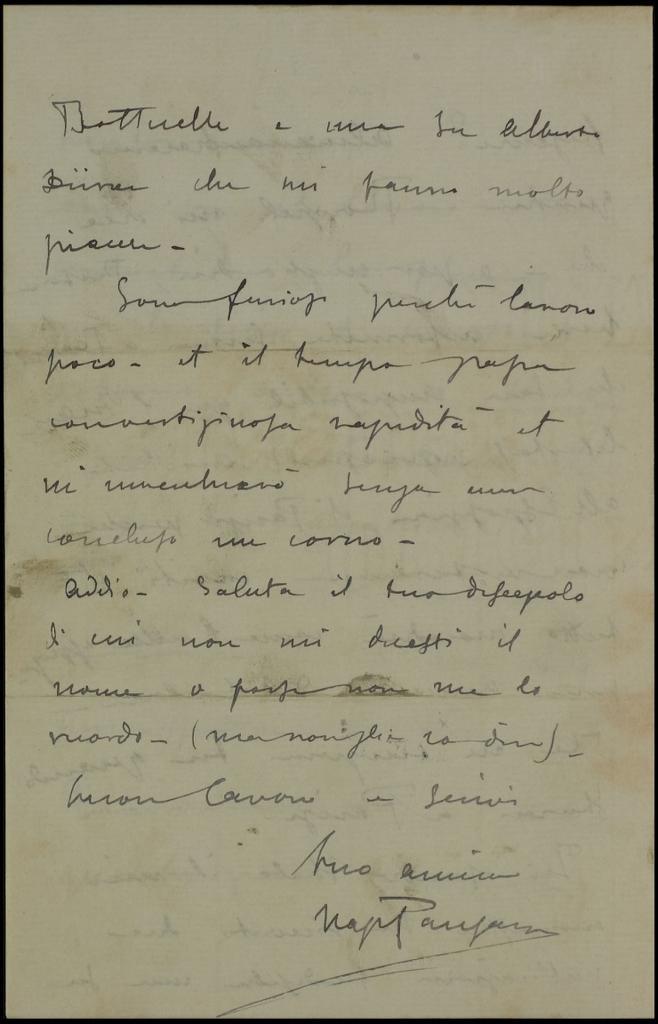 Botticelli e una su Alberto
Dürer che mi fanno molto
piacere -
Sono furioso perché lavoro
poco - et il tempo passa
con vertiginosa rapidità et
mi invecchierò senza aver
concluso un corno -
Addio - Saluta il tuo discepolo
di cui non mi dicesti il
nome o forse non me lo
ricordo - (ma non glie lo dire) -
buon lavoro e scrivi
tuo amico